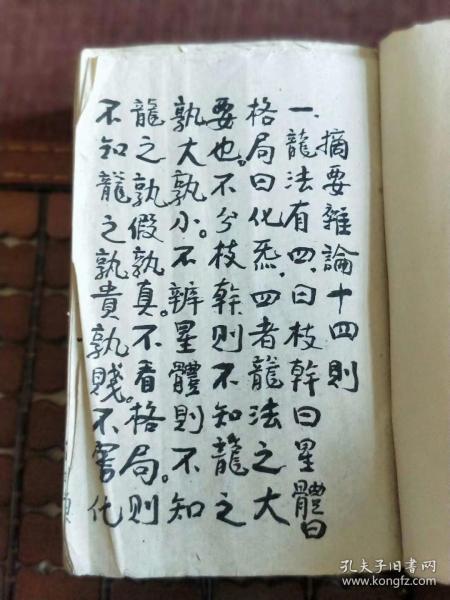 摘要雜論十四則
一、龍法有四、曰枝幹曰星體曰
格局曰化炁、四者龍法之大
要也。不分枝幹則不知龍之
孰大孰小。不辨星體則不知
龍之孰假孰真。不看格局。則
不知龍之孰貴孰賤。不審化
孔夫子旧书网
www.kongfz.com